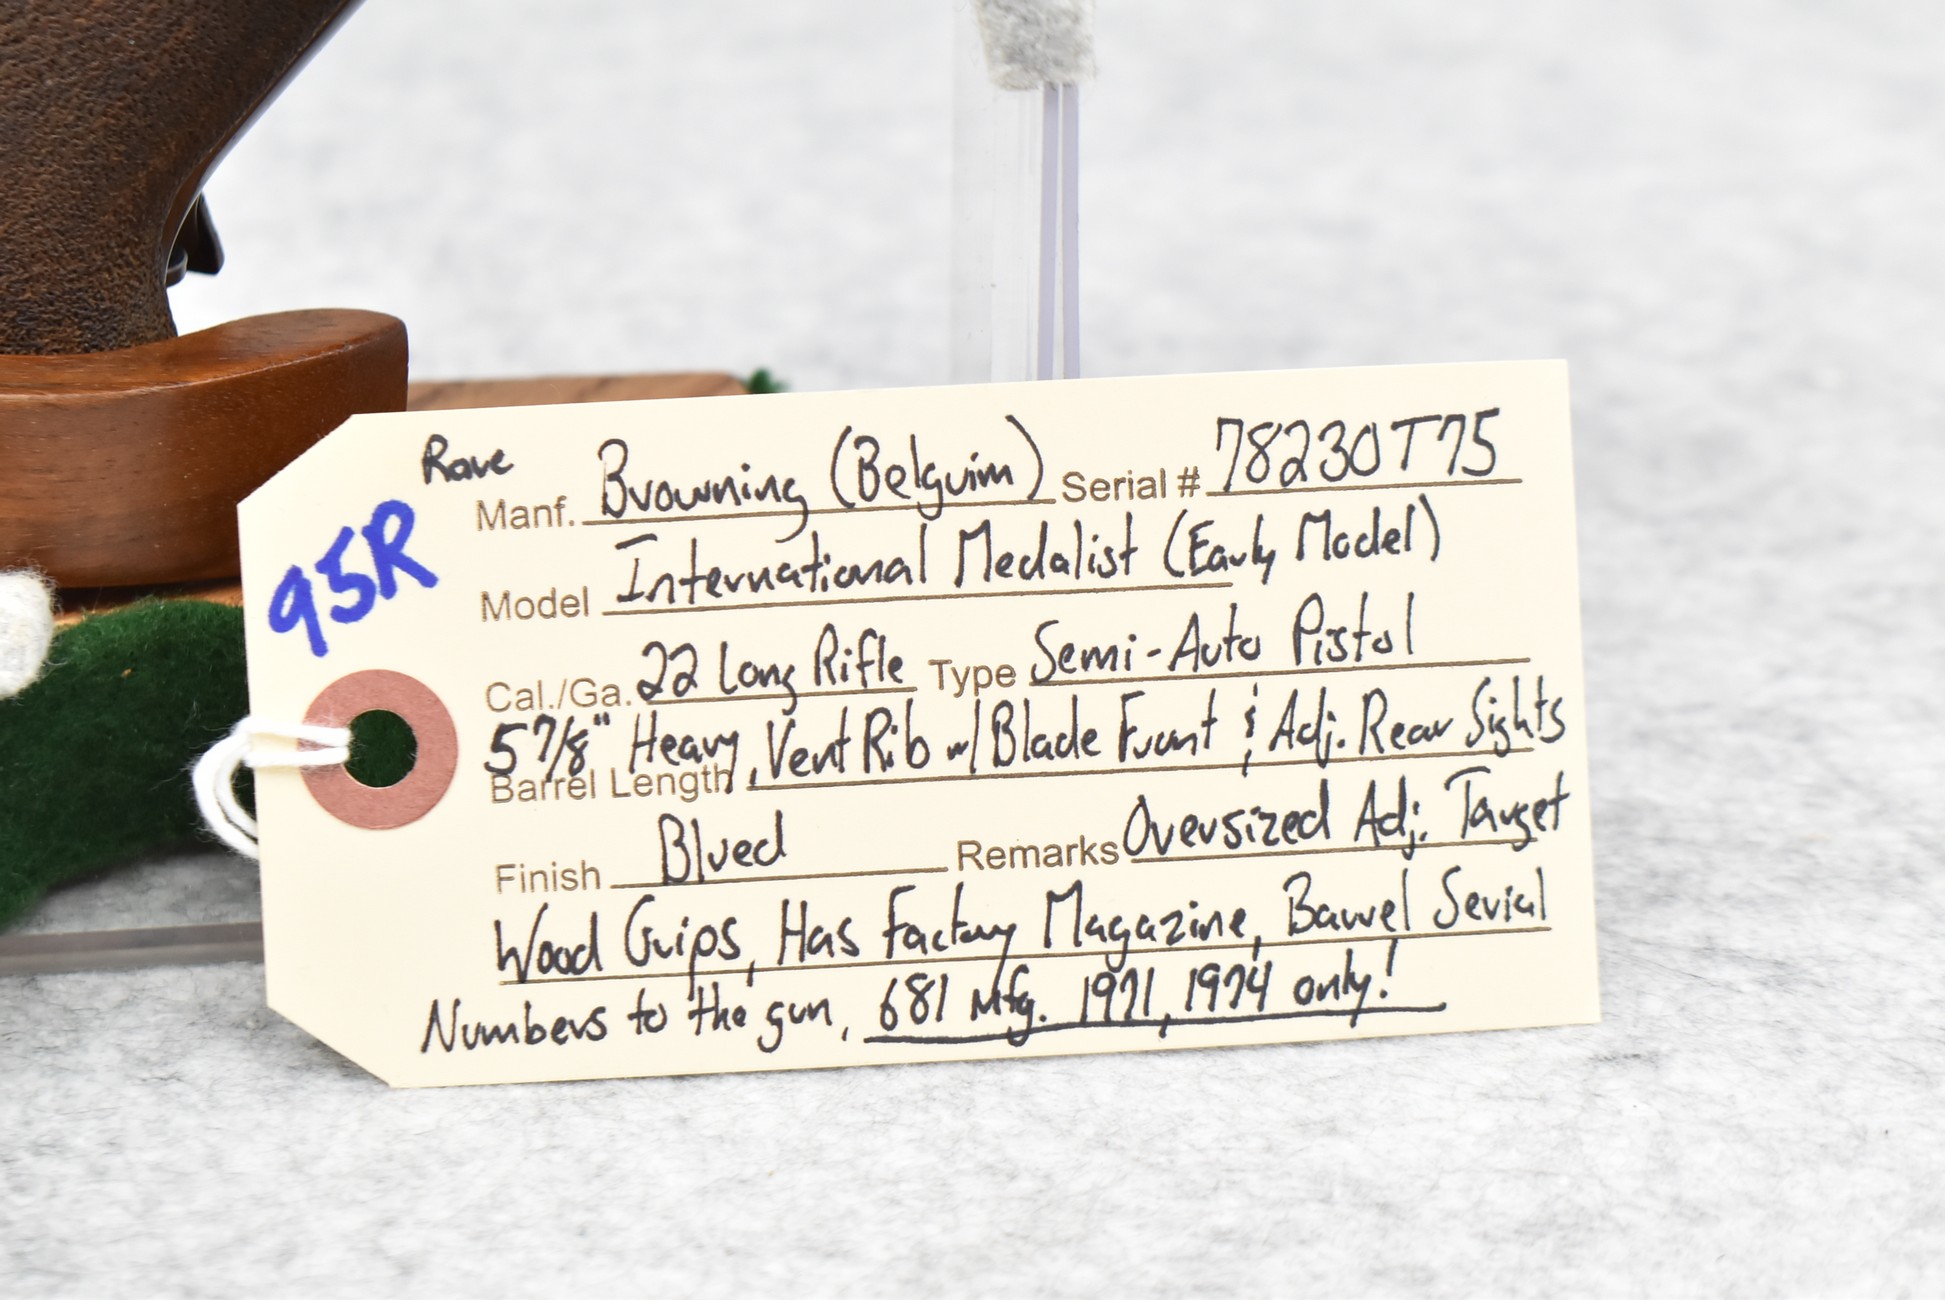 Rare
95R
Manf. Browning (Belguim) Serial # 78230T75
Model International Medalist (Early Model)
Cal./Ga. 22 Long Rifle Type Semi-Auto Pistol
5 7/8" Heavy, Vent Rib w/ Blade Front & Adj. Rear Sights
Barrel Length
Finish Blued Remarks Oversized Adj. Target
Wood Grips, Has Factory Magazine, Barrel Serial
Numbers to the gun, 681 Mfg. 1971, 1974 only!